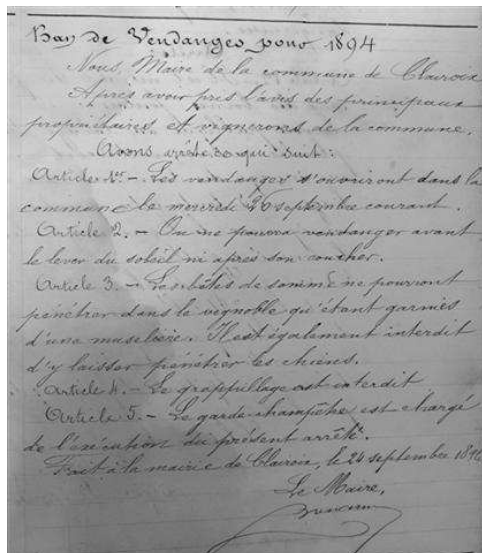 Ban de Vendanges pour 1894
Nous, Maire de la commune de Clairoix
Après avoir pris l'avis des principaux
propriétaires et vignerons de la commune.
Avons arrêté ce qui suit :
Article 1er - Les vendanges s'ouvriront dans la
commune le mercredi 26 septembre courant.
Article 2. - On ne pourra vendanger avant
le lever du soleil ni après son coucher.
Article 3. - Les bêtes de somme ne pourront
pénétrer dans le vignoble qu'étant garnies
d'une muselière. Il est également interdit
d'y laisser pénétrer les chèvres.
Article 4. - Le grappillage est interdit
Article 5. - Le garde-champêtre est chargé
de l'exécution du présent arrêté.
Fait à la mairie de Clairoix, le 24 septembre 1894
Le Maire,